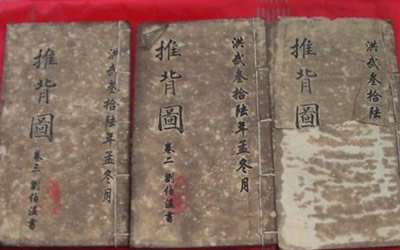 洪武叁拾陸
推背圖
洪武叁拾陸年孟冬月
推背圖
卷二 劉伯溫書
洪武叁拾陸年孟冬月
推背圖
卷三 劉伯溫書